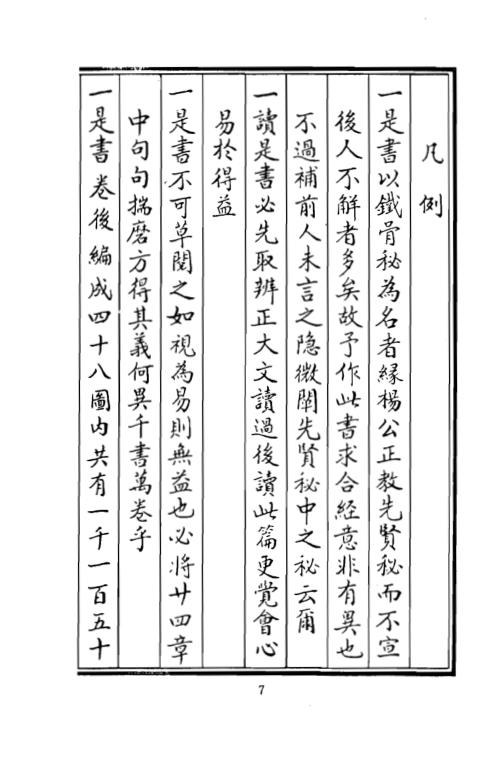 凡例
一是書以鐵骨秘為名者緣楊公正教先賢秘而不宣
後人不解者多矣故予作此書求合經意非有異也
不過補前人未言之隐微闡先賢秘中之秘云爾
一讀是書必先取辨正大文讀過後讀此篇更覺會心
易於得益
一是書不可草閱之如視為易則無益也必將廿四章
中句句揣磨方得其義何異千書萬卷乎
一是書卷後編成四十八圖内共有一千一百五十
7